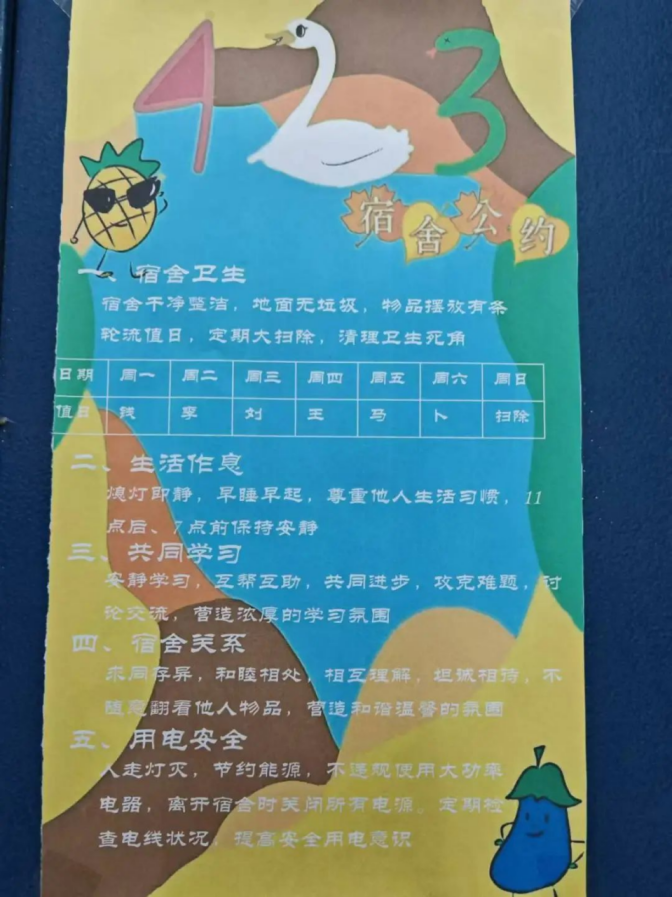 423
宿舍公约
一、宿舍卫生
宿舍干净整洁，地面无垃圾，物品摆放有条
轮流值日，定期大扫除，清理卫生死角
日期 周一 周二 周三 周四 周五 周六 周日
值日 钱 李 刘 王 马 卜 扫除
二、生活作息
熄灯即静，早睡早起，尊重他人生活习惯，11
点后、7点前保持安静
三、共同学习
安静学习，互帮互助，共同进步，攻克难题，讨
论交流，营造浓厚的学习氛围
四、宿舍关系
求同存异，和睦相处，相互理解，坦诚相待，不
随意翻看他人物品，营造和谐温馨的氛围
五、用电安全
人走灯灭，节约能源，不违规使用大功率
电器，离开宿舍时关闭所有电源。定期检
查电线状况，提高安全用电意识